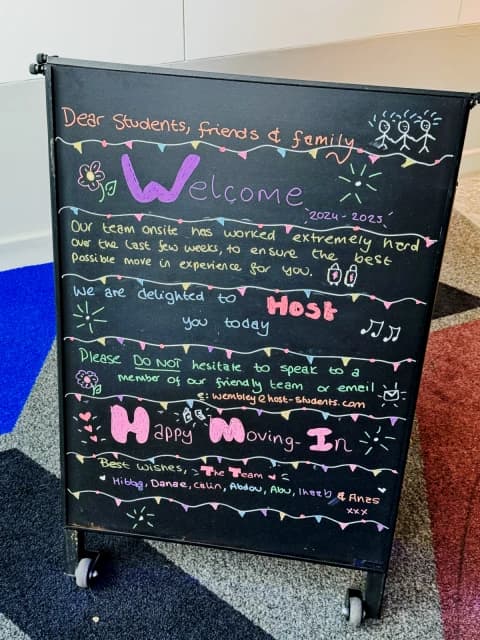 Dear Students, friends & family
Welcome
2024 - 2025
Our team onsite has worked extremely hard
over the last few weeks, to ensure the best
possible move in experience for you.
We are delighted to Host
you today
Please DO NOT hesitate to speak to a
member of our friendly team or email
e: wembley@host-students.com
Happy Moving-In
Best Wishes, The Team
Hibba, Danae, Colin, Abdou, Abu, & Anas
xxx